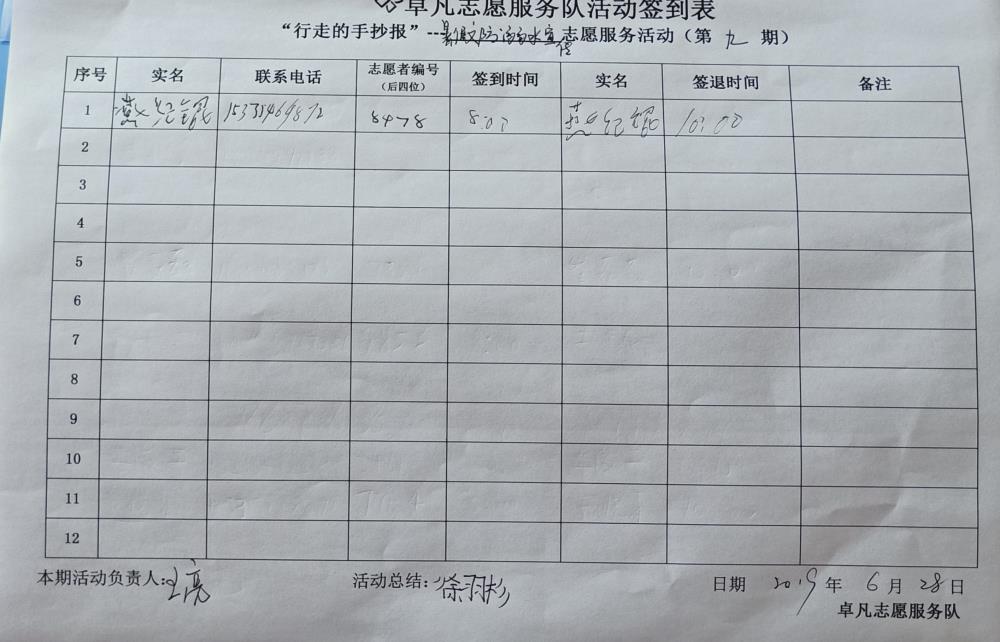 卓凡志愿服务队活动签到表
“行走的手抄报”--暑假防溺水宣传志愿服务活动（第九期）
序号 实名 联系电话 志愿者编号（后四位） 签到时间 实名 签退时间 备注
1 8478 8:00 10:00
2
3
4
5
6
7
8
9
10
11
12
本期活动负责人:王亮 活动总结:徐羽杉 日期 2019年6月28日
卓凡志愿服务队